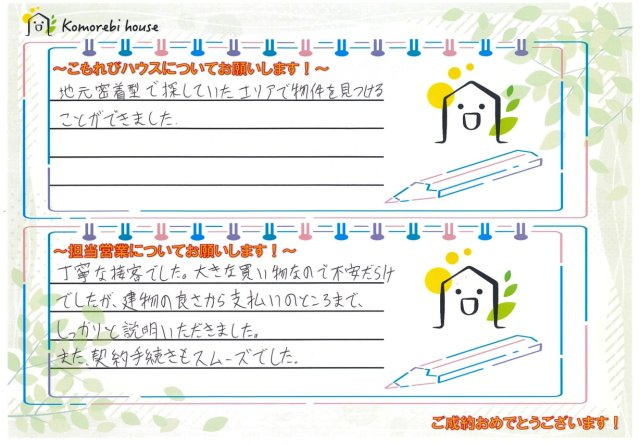 Komorebi house
～こもれびハウスについてお願いします！～
地元密着型で探していたエリアで物件を見つける
ことができました.
～担当営業についてお願いします！～
丁寧な接客でした。大きな買い物なので不安だらけ
でしたが、建物の良さから支払いのところまで、
しっかりと説明いただきました。
また、契約手続きもスムーズでした。
ご成約おめでとうございます！